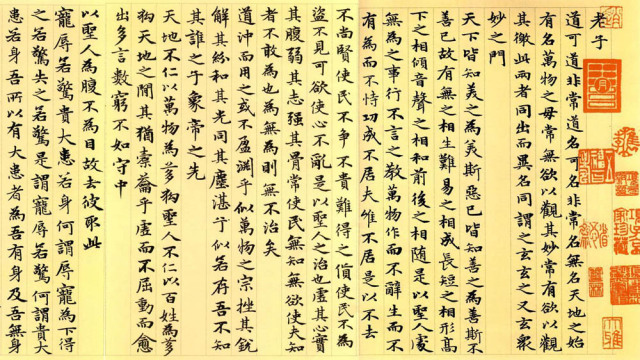 老子
道可道非常道名可名非常名無名天地之始
有名萬物之母常無欲以觀其妙常有欲以觀
其徼此兩者同出而異名同謂之玄玄之又玄衆
妙之門
天下皆知美之為美斯惡已皆知善之為善斯不
善已故有無之相生難易之相成長短之相形高
下之相傾音聲之相和前後之相隨是以聖人處
無為之事行不言之教萬物作而不辭生而不
有為而不恃功成不居夫惟不居是以不去
不尚賢使民不争不貴難得之貨使民不為
盜不見可欲使心不亂是以聖人之治也虛其心實
其腹弱其志强其骨常使民無知無欲使夫知
者不敢為也為無為則無不治矣
道沖而用之或不盈淵乎似萬物之宗挫其銳
解其紛和其光同其塵湛乎似若存吾不知
其誰之子象帝之先
天地不仁以萬物為芻狗聖人不仁以百姓為芻
狗天地之間其猶橐籥乎虛而不屈動而愈
出多言數窮不如守中
以聖人為腹不為目故去彼取此
寵辱若驚貴大患若身何謂辱寵為下得
之若驚失之若驚是謂寵辱若驚何謂貴大
患若身吾所以有大患者為吾有身及吾無身